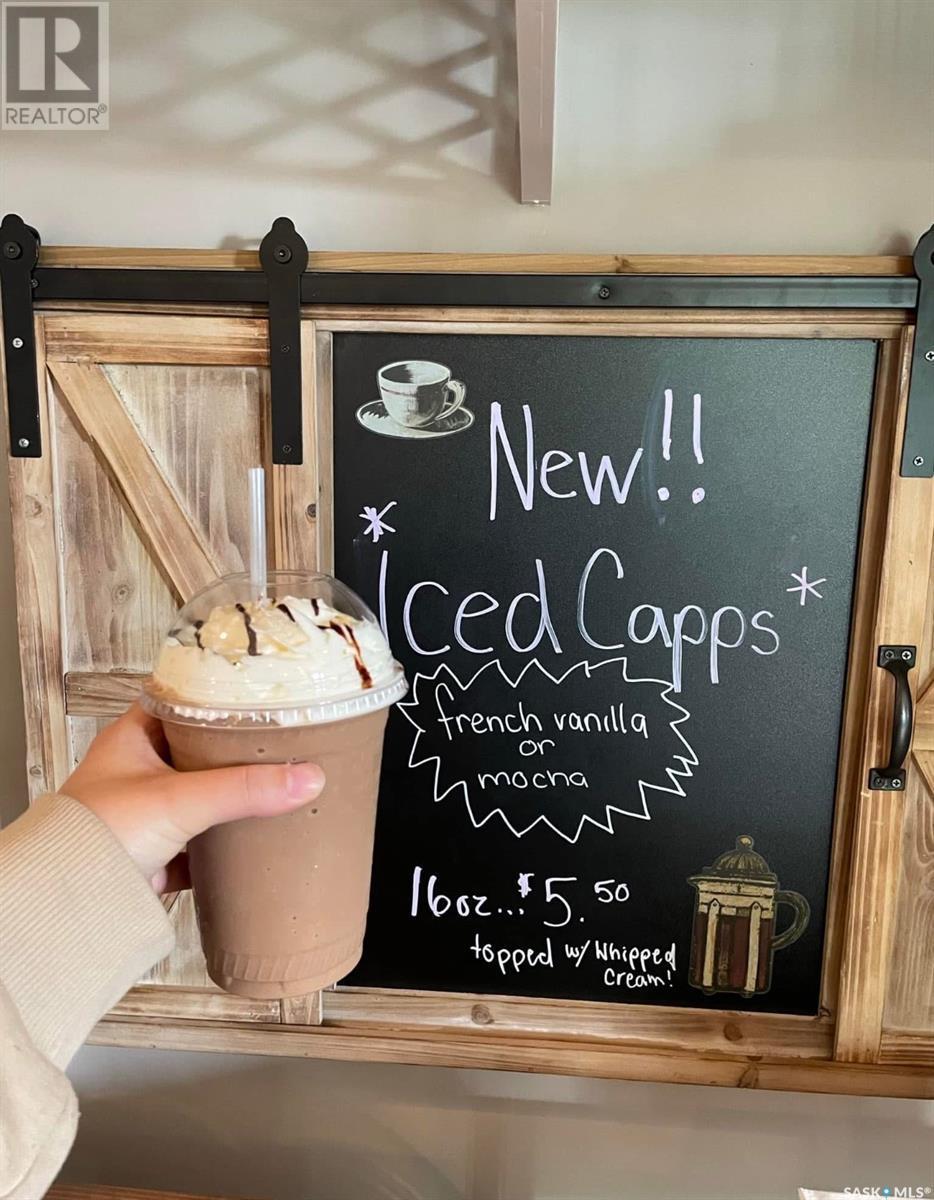 R
REALTOR®
New!!
*Iced Capps*
french vanilla
or
mocha
16oz...$5.50
topped w/ Whipped
Cream!
SASK MLS®